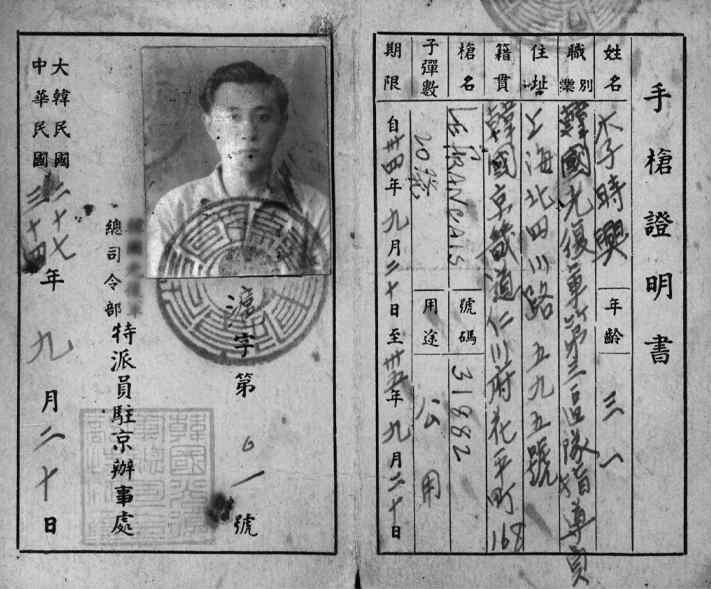 手槍證明書
姓名 李時興 年齡 三一
職業別 韓國光復軍第三區隊指導員
住址 上海北四川路五九五號
籍貫 韓國京畿道仁川府花平町168
槍名 LE FRANCAIS 號碼 31882
子彈數 20發 用途 公用
期限 自卅四年九月二十日至卅五年九月二十日
滬字第 61 號
韓國光復軍
總司令部特派員駐京辦事處
大韓民國二十七
中華民國三十四年九月二十日